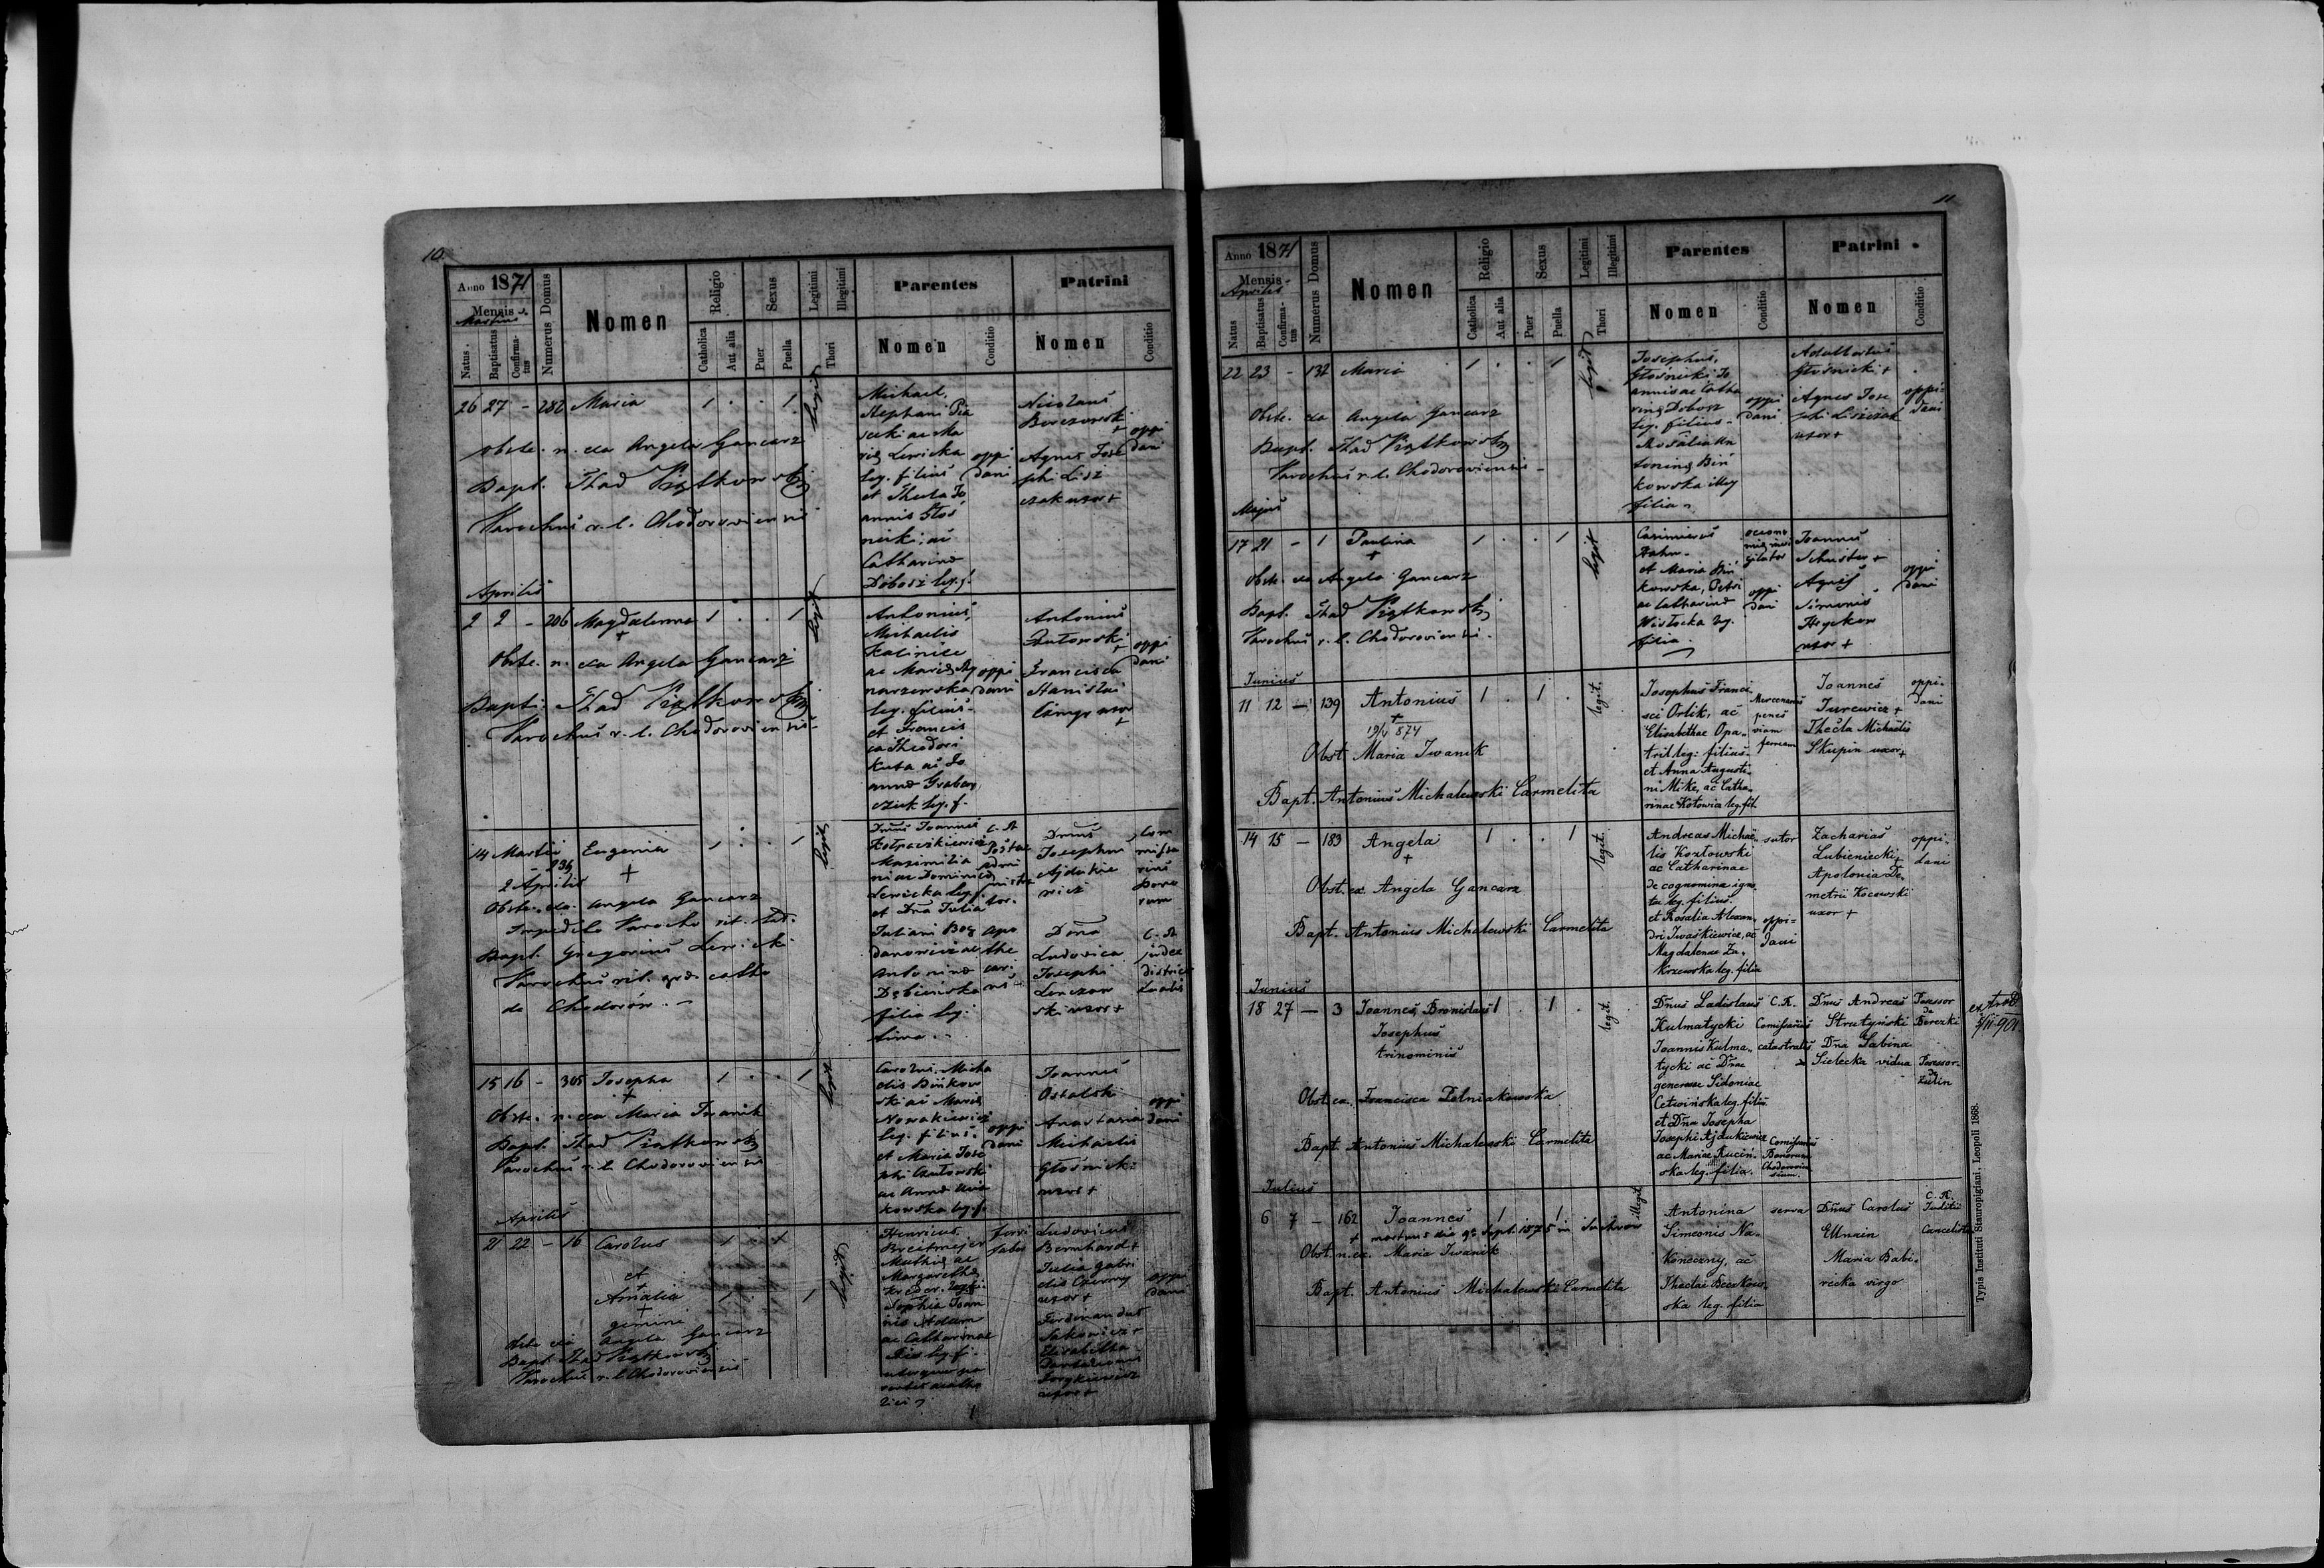 10.
Anno 1871
Mensis
Martius
Natus.
Baptisatus
Confirmatus
Numerus Domus
Nomen
Religio
Catholica
Aut alia
Sexus
Puer
Puella
Legitimi
Illegitimi
Thori
Parentes
Nomen
Conditio
Patrini
Nomen
Conditio
26 27 - 282 Maria 1 . . 1 legit
Obste. n. exa Angela Gancarz
Bapt. Thad Piątkowski
Parochus r. l. Chodoroviensis
Michael,
Stephani Pia
secki ac Ma
riæ Lewicka
leg. filius
et Thecla Jo
annis Głoś
nicki, ac
Catharinæ
Dobosz leg. f.
oppi
dani
Nicolaus
Berezowski
+
Agnes Jose
phi Lisz
czak uxor +
oppi
dani
Aprilis
2 2 - 206 Magdalena 1 . . 1 legit
+
Obste. n. exa Angela Gancarz
Bapt: Thad Piątkowski
Parochus r. l. Chodoroviensis
Antonius,
Michaelis
Kalinicz
ac Mariæ
leg. filius
et Francis
ca Theodori
Kuta ac Jo
annæ Grabow
leg. f.
oppi
dani
Antonius
+
Francisca
Stanislai
uxor
+
oppi
dani
14 Martii - 234 Eugenia 1 . . 1 legit
2 Aprilis +
Obste. exa. Angela Gancarz
Impedito Parocho rit. lat.
Bapt. Gregorius Lewicki
Parochus rit. gr. catho
de Chodorów. -
Dnus Joannes
Maximilia
ni ac Dominicæ
Lewicka leg. f.
et Dna Julia
Juliani Bog
danowicz ac
Antoninæ
filia legi
tima.
C. R.
Postæ
admi
nistra
tor.
apo
the
cari
us
Dnus
Josephus
Ajdukie
wicz
Dna
Ludovica
Josephi
Lenczow
ski uxor +
Com
missa
rius
bono
rum
C. R.
judex
district
ualis
15 16 - 305 Josepha 1 . . 1 legit
+
Obste. n. exa Maria Iwanik
Bapt. Thad Piątkowski
Parochus r. l. Chodoroviensis
Carolus, Micha
elis Bińkow
ski ac Mariæ
Nowakiewicz
leg. filius.
et Maria Jose
phi
ac Annæ
kowska leg. f.
oppi
dani
Joannes
Ostalski
Anastasia
Michaelis
Głośnicki
uxor +
oppi
dani
Aprilis
21 22 - 16 Carolus 1 . +
et
+
Amalia 1 . 1 legit
+
gemini
Obste exa Angela Gancarz
Bapt. Thad Piątkowski
Parochus r. l. Chodoroviensis
Henricus
Breitmejer
Mathiæ ac
Margarethæ
Sophia Joan
nis Adam
ac Catharinae
leg. f.
uterque pa
rentes acatho
lici
ferri
faber
Ludovicus
Bernhard +
Julia Gabri
elis Czerny
uxor +
Ferdinandus
Sakowicz +
Elisabetha
uxor +
oppi
dani
11
Anno 1871
Mensis
Aprilis
Natus
Baptisatus
Confirmatus
Numerus Domus
Nomen
Religio
Catholica
Aut alia
Sexus
Puer
Puella
Legitimi
Illegitimi
Thori
Parentes
Nomen
Conditio
Patrini
Nomen
Conditio
22 23 - 132 Maria 1 . . 1 legit
Obste. exa Angela Gancarz
Bapt. Thad Piątkowski
Parochus r. l. Chodoroviensis -
Josephus,
Głośnicki Jo
annis ac Catha
rinæ Dobosz
leg. filius -
Rosalia An
toninæ Biń
kowska illeg
filia
oppi
dani
Adalbertus
Głośnicki +
Agnes Jose
phi Liszczak
uxor +
oppi-
dani
Majus
17 21 - 1 Paulina 1 . . 1 legit
+
Obste. exa Angela Gancarz
Bapt. Thad Piątkowski
Parochus r. l. Chodoroviensis.
Casimirus
Hahn -
et Maria Biń
kowska, Petri
ac Catharinæ
Wisłocka leg.
filia
oppi
dani
Joannes
Schuster +
Agnes
Simonis
uxor +
oppi
dani
Junius
11 12 - 139 Antonius 1 . 1 . legit.
+
19/V 874
Obst Maria Iwanik
Bapt. Antonius Michalewski Carmelita
Josephus Franci
sci Orlik, ac
Elisabethae Opa
tril leg: filius
et Anna Augusti
ni Mike, ac Catha
rinae Kotowia leg. fil.
Mercenarius
penes
viam
ferream
Joannes
Jurewicz +
Thecla Michaelis
Skupin uxor +
oppi-
dani
14 15 - 183 Angela 1 . . 1 legit.
+
Obst. ex. Angela Gancarz
Bapt. Antonius Michalewski Carmelita
Andreas Michae
lis Kozłowski
ac Catharinae
de cognomine igno
ta leg. filius.
et Rosalia Alexan
dri Iwaśkiewicz, ac
Magdalenae Za
krzewska leg. filia
sutor
oppi-
dani
Zacharias
Lubieniecki +
Apolonia De
metrii Kocowski
uxor +
oppi-
dani
Junius
18 27 - 3 Joannes, Bronislaus 1 . 1 . legit.
Josephus
trinominis
Obst. ex. Francisca Pelniakowska
Bapt. Antonius Michalewski Carmelita
Dnus Ladislaus
Kulmatycki
Joannis Kulma
tycki ac Dnae
generosae Sidoniae
Cetwińska leg. filius
et Dna Josepha
Josephi Ajdukiewicz
ac Mariae Ruciń
ska leg. filia.
C. R.
Comissarius
catastralis
Comissarius
Bonorum
Chodorovien
sium.
Dnus Andreas
Strutyński
Dna Sabina
Sielecka vidua
Possessor
de
Berezki
Possessor
de
Żulin
ex. trad
Julius
6 7 - 162 Joannes 1 1 illegit
+ mortuus die 9a Sept. 1875 in Suchrow
Obst. n. ex. Maria Iwanik
Bapt. Antonius Michalewski Carmelita
Antonina
Simeonis Na
Koneczny, ac
Theclae Beczkow
ska leg. filia
serva
Dnus Carolus
Ellnain
Maria Babi
recka virgo
C. R.
Juditii
Cancelista
Typis Instituti Stauropigiani, Leopoli 1868.